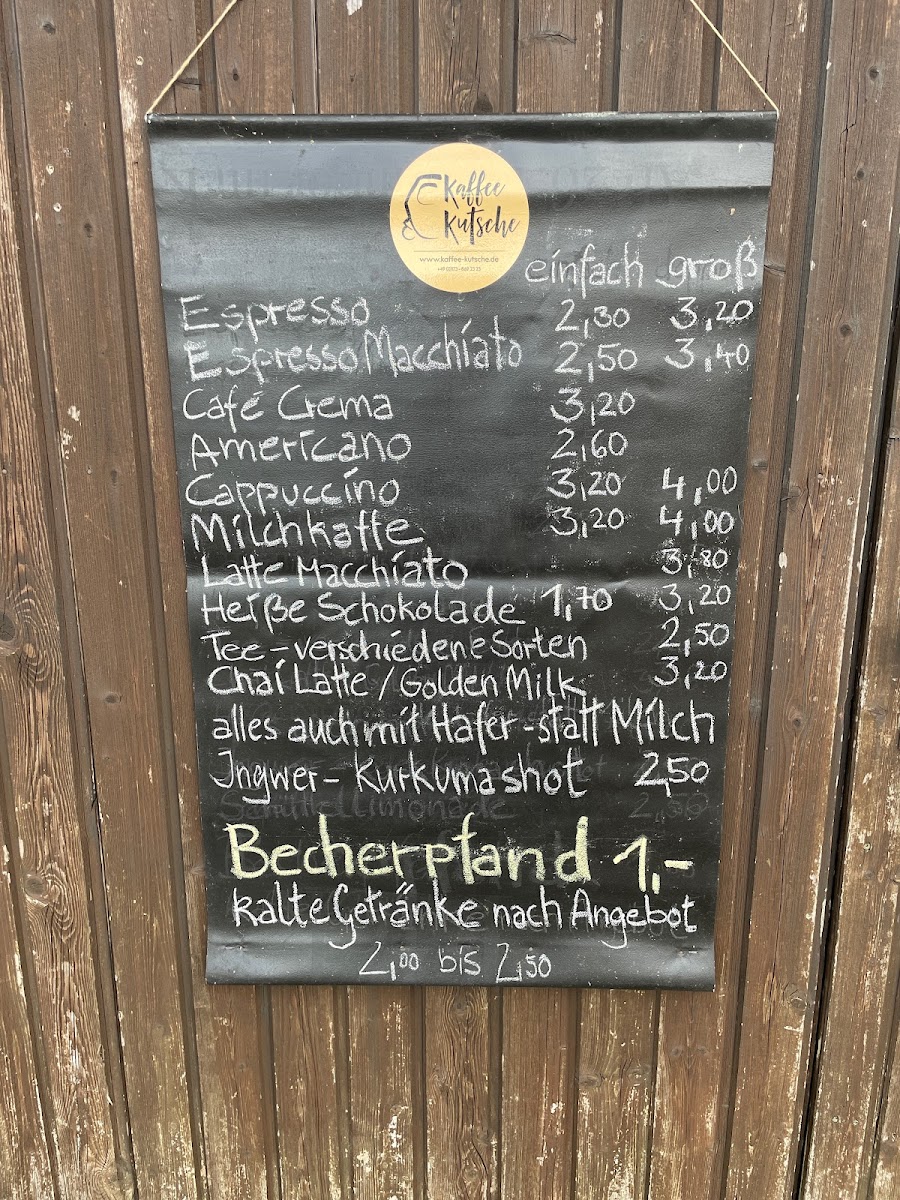 Kaffee
Kutsche
www.kaffee-kutsche.de
einfach groß
Espresso 2,30 3,20
Espresso Macchiato 2,50 3,40
Café Crema 3,20
Americano 2,60
Cappuccino 3,20 4,00
Milchkaffe 3,20 4,00
Latte Macchiato 3,80
Heiße Schokolade 1,70 3,20
Tee - verschiedene Sorten 2,50
Chai Latte / Golden Milk 3,20
alles auch mit Hafer - statt Milch
Ingwer - Kurkumashot 2,50
Becherpfand 1,-
kalte Getränke nach Angebot
2,00 bis 2,50